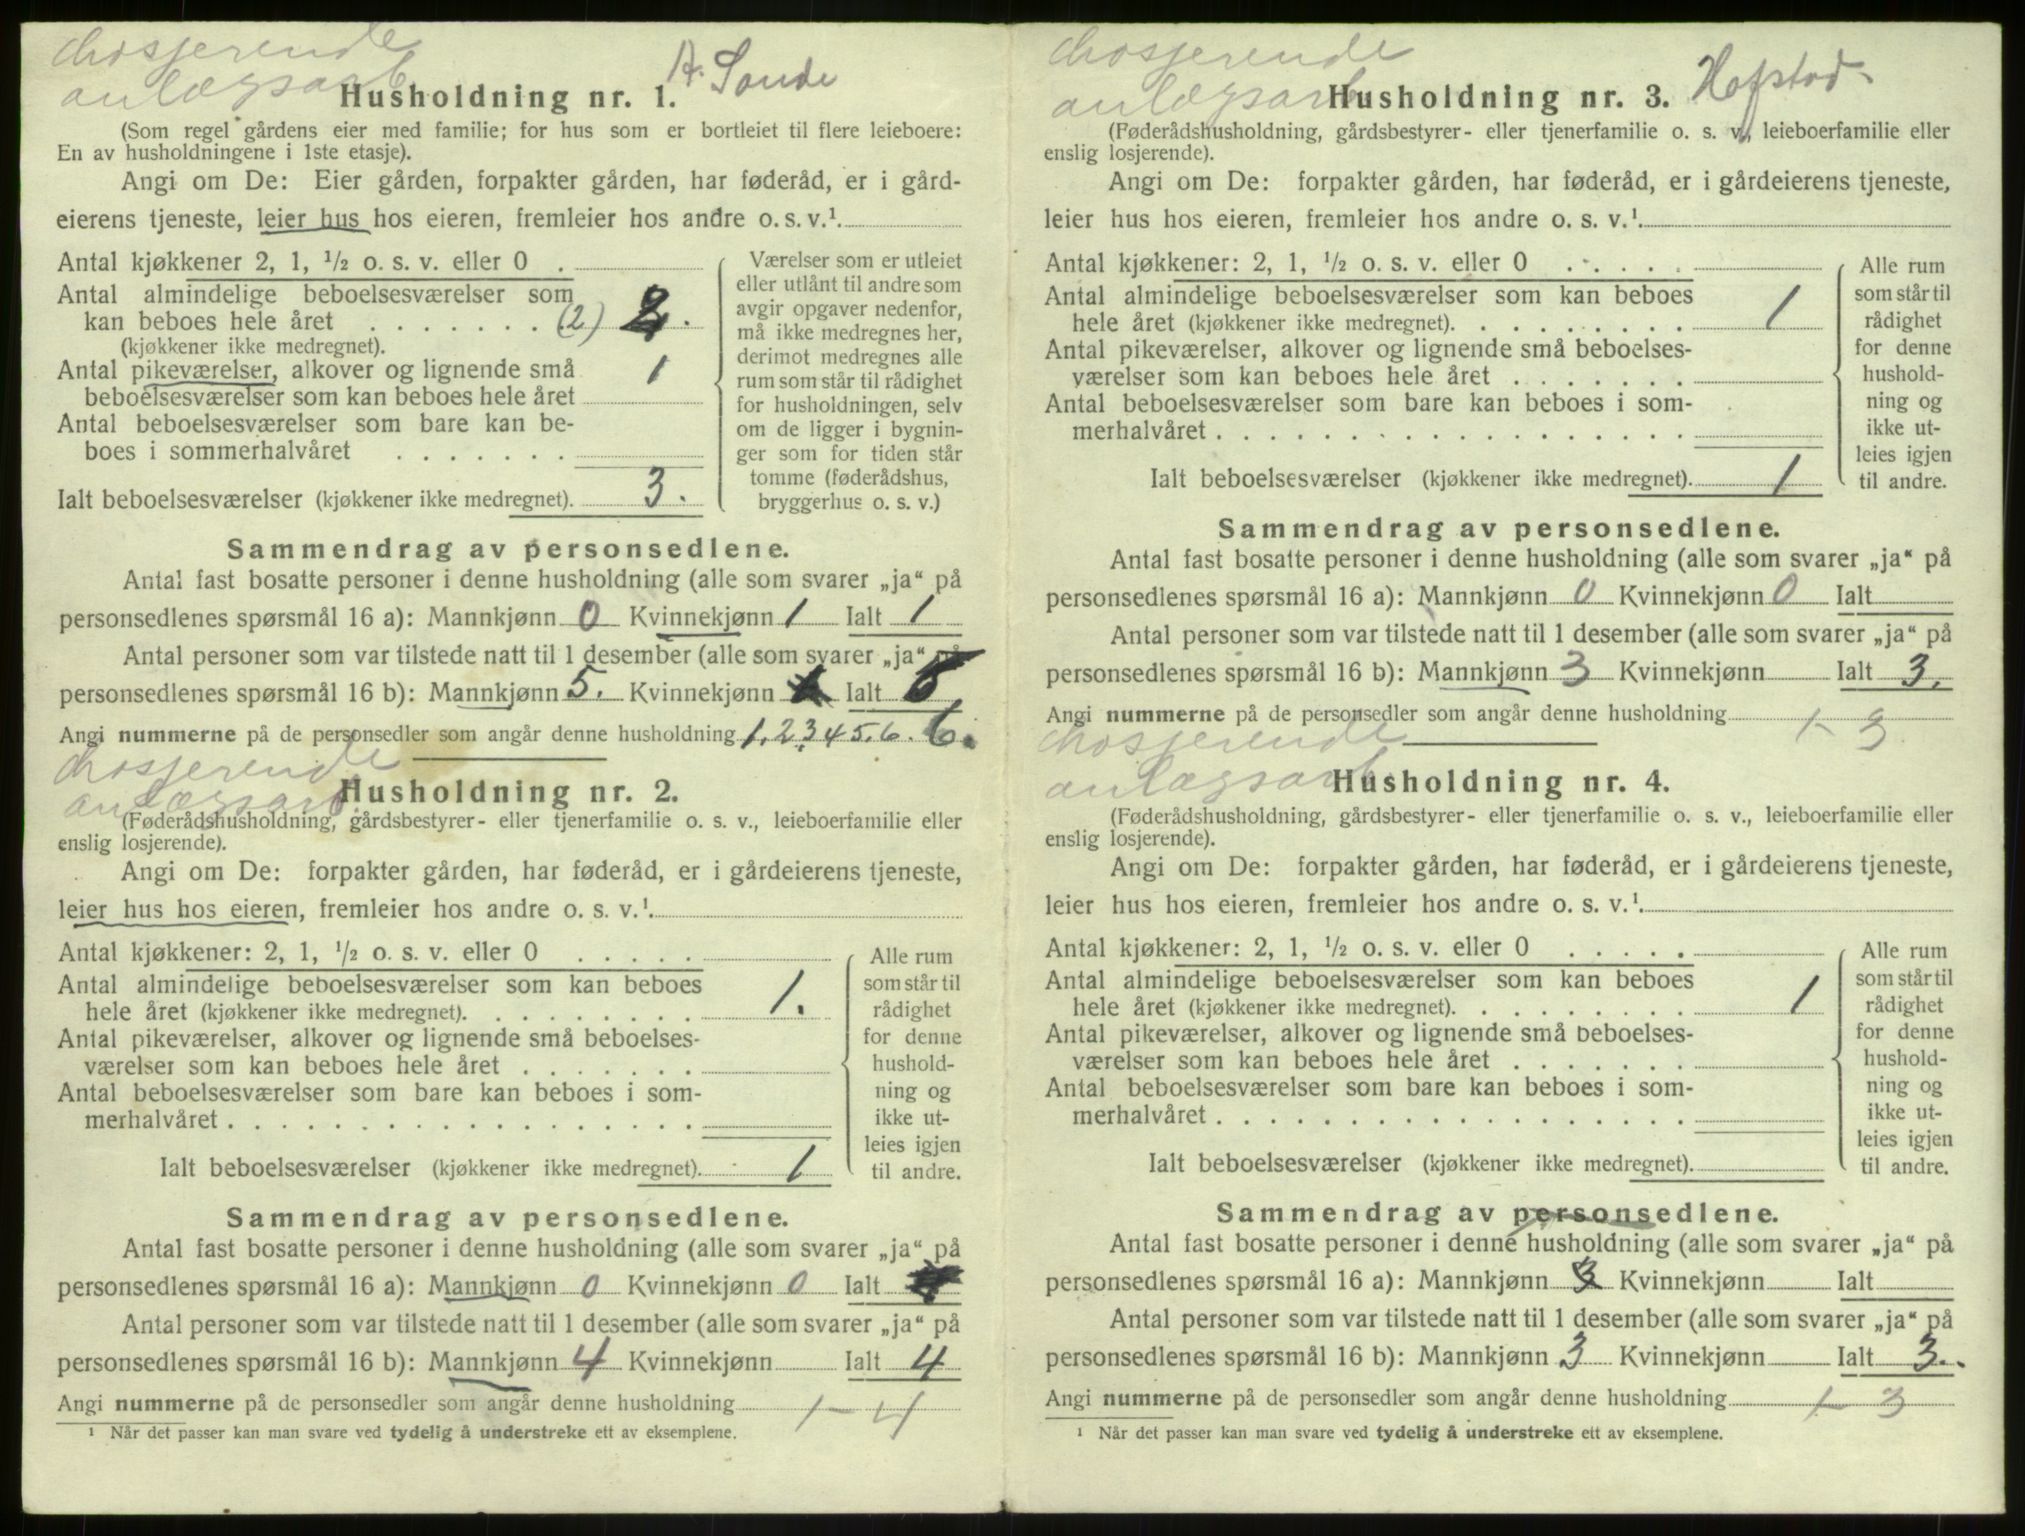 Losjerende
anlægsarb.
A. Sande
Husholdning nr. 1.
(Som regel gårdens eier med familie; for hus som er bortleiet til flere leieboere:
En av husholdningene i 1ste etasje).
Angi om De: Eier gården, forpakter gården, har føderåd, er i gård-
eierens tjeneste, leier hus hos eieren, fremleier hos andre o. s. v.¹.
Antal kjøkkener 2, 1, ½ o. s. v. eller 0 .
Antal almindelige beboelsesværelser som
kan beboes hele året . . . . . . . (2) 2.
(kjøkkener ikke medregnet).
Antal pikeværelser, alkover og lignende små 1
beboelsesværelser som kan beboes hele året
Antal beboelsesværelser som bare kan be-
boes i sommerhalvåret . . . . . . .
Ialt beboelsesværelser (kjøkkener ikke medregnet). 3.
Værelser som er utleiet
eller utlånt til andre som
avgir opgaver nedenfor,
må ikke medregnes her,
derimot medregnes alle
rum som står til rådighet
for husholdningen, selv
om de ligger i bygnin-
ger som for tiden står
tomme (føderådshus,
bryggerhus o. s. v.)
Sammendrag av personsedlene.
Antal fast bosatte personer i denne husholdning (alle som svarer „ja“ på
personsedlenes spørsmål 16 a): Mannkjønn 0 Kvinnekjønn 1 Ialt 1
Antal personer som var tilstede natt til 1 desember (alle som svarer „ja“ på
personsedlenes spørsmål 16 b): Mannkjønn 5. Kvinnekjønn Ialt
Angi nummerne på de personsedler som angår denne husholdning 1.2.3 4 5.6. 6.
Losjerende
anlægsarb.
Husholdning nr. 2.
(Føderådshusholdning, gårdsbestyrer- eller tjenerfamilie o. s. v., leieboerfamilie eller
enslig losjerende).
Angi om De: forpakter gården, har føderåd, er i gårdeierens tjeneste,
leier hus hos eieren, fremleier hos andre o. s. v.¹.
Antal kjøkkener: 2, 1, ½ o. s. v. eller 0 . . . . .
Antal almindelige beboelsesværelser som kan beboes
hele året (kjøkkener ikke medregnet). . . . . . . . . 1.
Antal pikeværelser, alkover og lignende små beboelses-
værelser som kan beboes hele året . . . . . . .
Antal beboelsesværelser som bare kan beboes i som-
merhalvåret . . . . . . . . . . . . . . . . . .
Ialt beboelsesværelser (kjøkkener ikke medregnet). 1
Alle rum
som står til
rådighet
for denne
hushold-
ning og
ikke ut-
leies igjen
til andre.
Sammendrag av personsedlene.
Antal fast bosatte personer i denne husholdning (alle som svarer „ja“ på
personsedlenes spørsmål 16 a): Mannkjønn 0 Kvinnekjønn 0 Ialt
Antal personer som var tilstede natt til 1 desember (alle som svarer „ja“ på
personsedlenes spørsmål 16 b): Mannkjønn 4 Kvinnekjønn Ialt 4
Angi nummerne på de personsedler som angår denne husholdning 1 – 4
¹ Når det passer kan man svare ved tydelig å understreke ett av eksemplene.
Losjerende
anlægsarb.
Hofstad
Husholdning nr. 3.
(Føderådshusholdning, gårdsbestyrer- eller tjenerfamilie o. s. v., leieboerfamilie eller
enslig losjerende).
Angi om De: forpakter gården, har føderåd, er i gårdeierens tjeneste,
leier hus hos eieren, fremleier hos andre o. s. v.¹.
Antal kjøkkener: 2, 1, ½ o. s. v. eller 0 . . . . .
Antal almindelige beboelsesværelser som kan beboes
hele året (kjøkkener ikke medregnet). . . . . . . . . 1
Antal pikeværelser, alkover og lignende små beboelses-
værelser som kan beboes hele året . . . . . . .
Antal beboelsesværelser som bare kan beboes i som-
merhalvåret . . . . . . . . . . . . . . . . . .
Ialt beboelsesværelser (kjøkkener ikke medregnet). 1
Alle rum
som står til
rådighet
for denne
hushold-
ning og
ikke ut-
leies igjen
til andre.
Sammendrag av personsedlene.
Antal fast bosatte personer i denne husholdning (alle som svarer „ja“ på
personsedlenes spørsmål 16 a): Mannkjønn 0 Kvinnekjønn 0 Ialt
Antal personer som var tilstede natt til 1 desember (alle som svarer „ja“ på
personsedlenes spørsmål 16 b): Mannkjønn 3 Kvinnekjønn Ialt 3.
Angi nummerne på de personsedler som angår denne husholdning 1 – 3
Losjerende
anlægsarb.
Husholdning nr. 4.
(Føderådshusholdning, gårdsbestyrer- eller tjenerfamilie o. s. v., leieboerfamilie eller
enslig losjerende).
Angi om De: forpakter gården, har føderåd, er i gårdeierens tjeneste,
leier hus hos eieren, fremleier hos andre o. s. v.¹.
Antal kjøkkener: 2, 1, ½ o. s. v. eller 0 . . . . .
Antal almindelige beboelsesværelser som kan beboes
hele året (kjøkkener ikke medregnet). . . . . . . . . 1
Antal pikeværelser, alkover og lignende små beboelses-
værelser som kan beboes hele året . . . . . . .
Antal beboelsesværelser som bare kan beboes i som-
merhalvåret . . . . . . . . . . . . . . . . . .
Ialt beboelsesværelser (kjøkkener ikke medregnet).
Alle rum
som står til
rådighet
for denne
hushold-
ning og
ikke ut-
leies igjen
til andre.
Sammendrag av personsedlene.
Antal fast bosatte personer i denne husholdning (alle som svarer „ja“ på
personsedlenes spørsmål 16 a): Mannkjønn 3 Kvinnekjønn Ialt
Antal personer som var tilstede natt til 1 desember (alle som svarer „ja“ på
personsedlenes spørsmål 16 b): Mannkjønn 3 Kvinnekjønn Ialt 3.
Angi nummerne på de personsedler som angår denne husholdning 1 – 3
¹ Når det passer kan man svare ved tydelig å understreke ett av eksemplene.